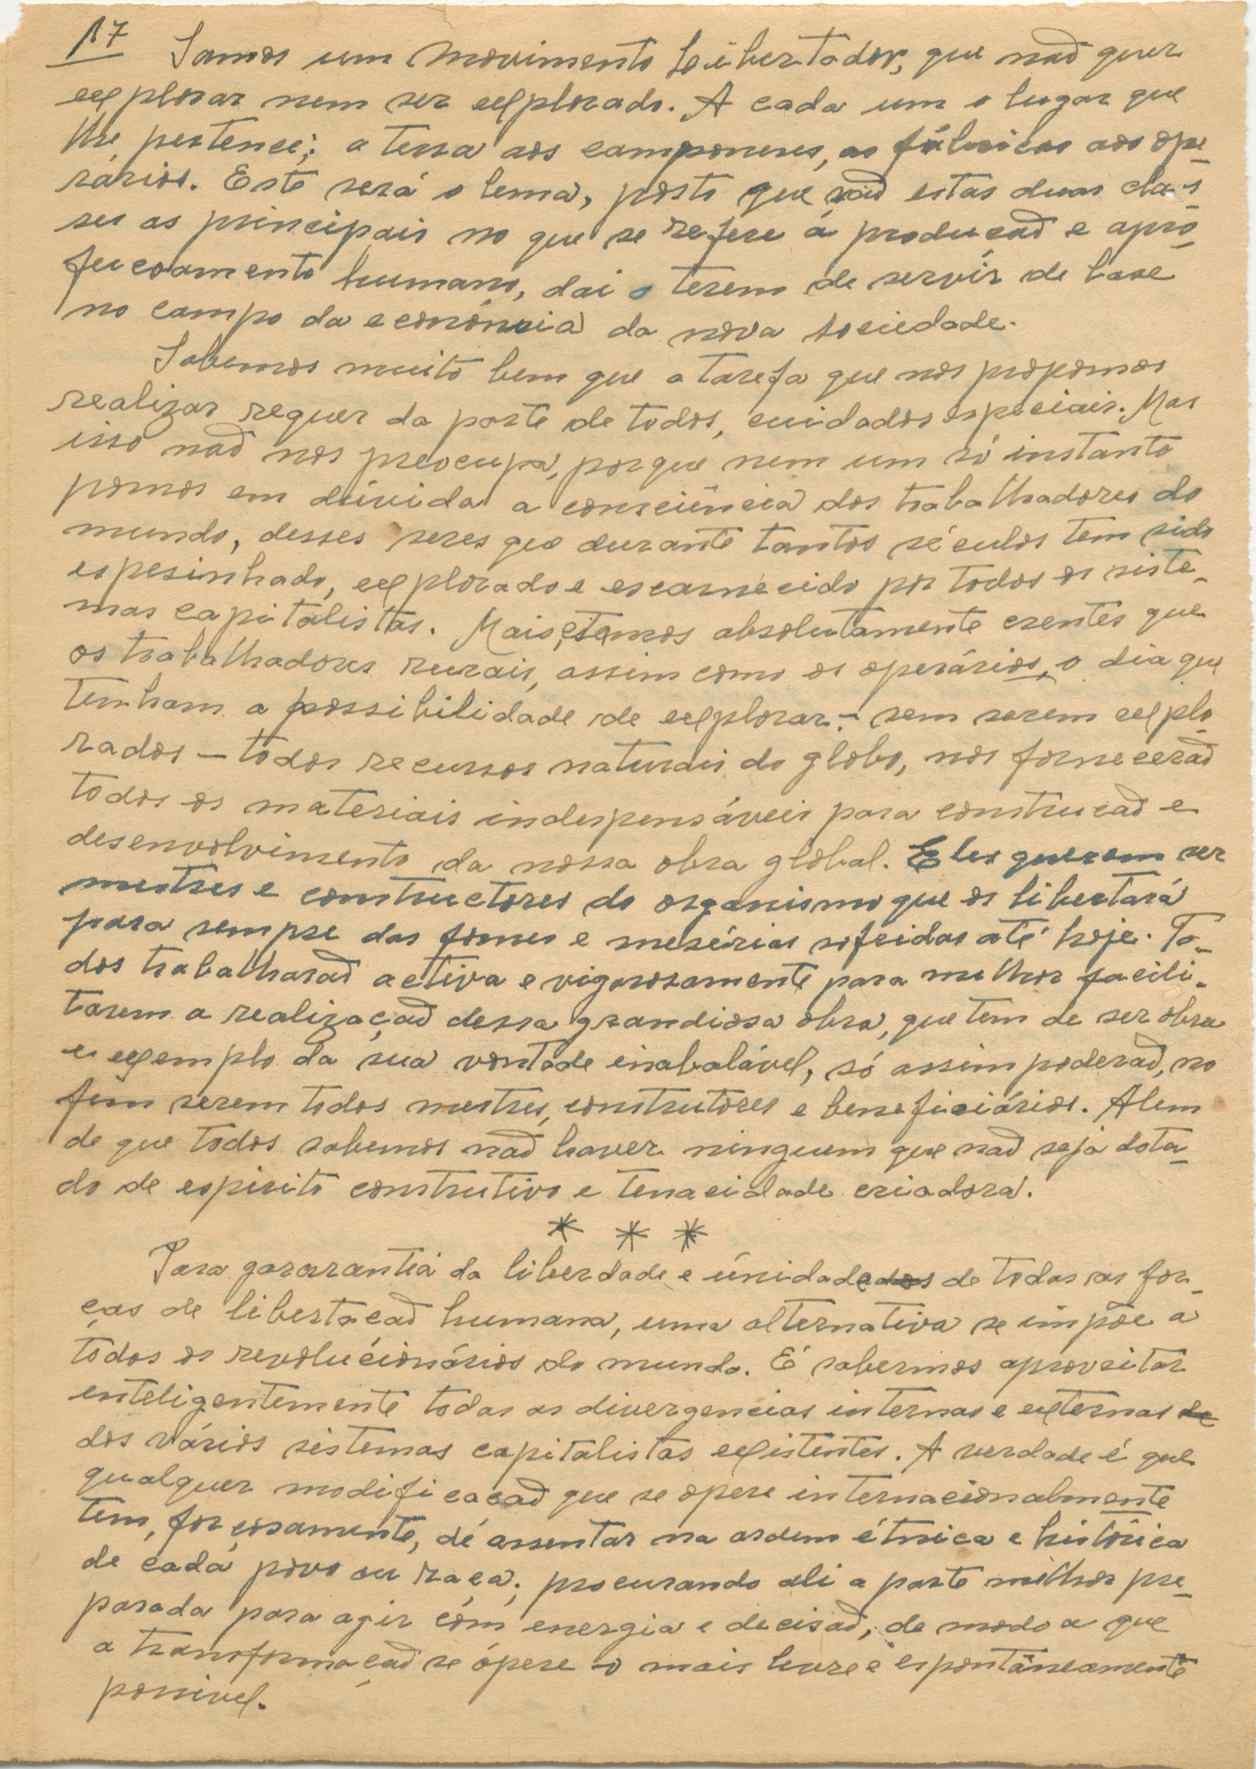 17 Somos um Movimento Leibertador, que não quer
explorar nem ser explorado. A cada um o lugar que
lhe pertence; a terra aos camponeses, as fábricas aos ope-
rários. Este será o lema, posto que são estas duas clas-
ses as principais no que se refere á producão e aper-
feiçoamento humano, dai o terem de servir de base
no campo da economia da nova sociedade.
Sabemos muito bem que a tarefa que nos propomos
realizar requer da parte de todos, cuidados especiais. Mas
isso não nos preocupa, porque nem um só instante
pomos em dúvida a consciência dos trabalhadores do
mundo, desses seres que durante tantos séculos tem sido
espesinhado, explorado e escarnecido por todos os siste-
mas capitalistas. Mais, estamos absolutamente crentes que
os trabalhadores rurais, assim como os operários, o dia que
tenham a possibilidade de explorar - sem serem explo-
rados - todos recursos naturais do globo, nos fornecerão
todos os materiais indespensáveis para construcão e
desenvolvimento da nossa obra global. Eles querem ser
mestres e constructores do organismo que os libertará
para sempre das fomes e mesérias sofridas até hoje. To-
dos trabalharão activa e vigorosamente para melhor facili-
tarem a realização dessa grandiosa obra, que tem de ser obra
e exemplo da sua vontade inabalável, só assim poderão, no
fim serem todos mestres, construtores e beneficiários. Alem
de que todos sabemos não haver ninguem que não seja dota-
do de espirito construtivo e tenacidade criadora.
* * *
Para gararantia da liberdade e únidadedos de todas as for-
ças de libertacão humana, uma alternativa se impõe a
todos os revolucionários do mundo. É sabermos aproveitar
enteligentemente todas as divergencias internas e externas de
dos vários sistemas capitalistas existentes. A verdade é que
qualquer modificacão que se opere internacionalmente
tem, forçosamente, de assentar na ordem étnica e histórica
de cada povo ou raça, procurando ali a parte milhor pre-
parada para agir com energia e decisão, de modo a que
a transformação se ópere o mais livre e espontâneamente
possivel.